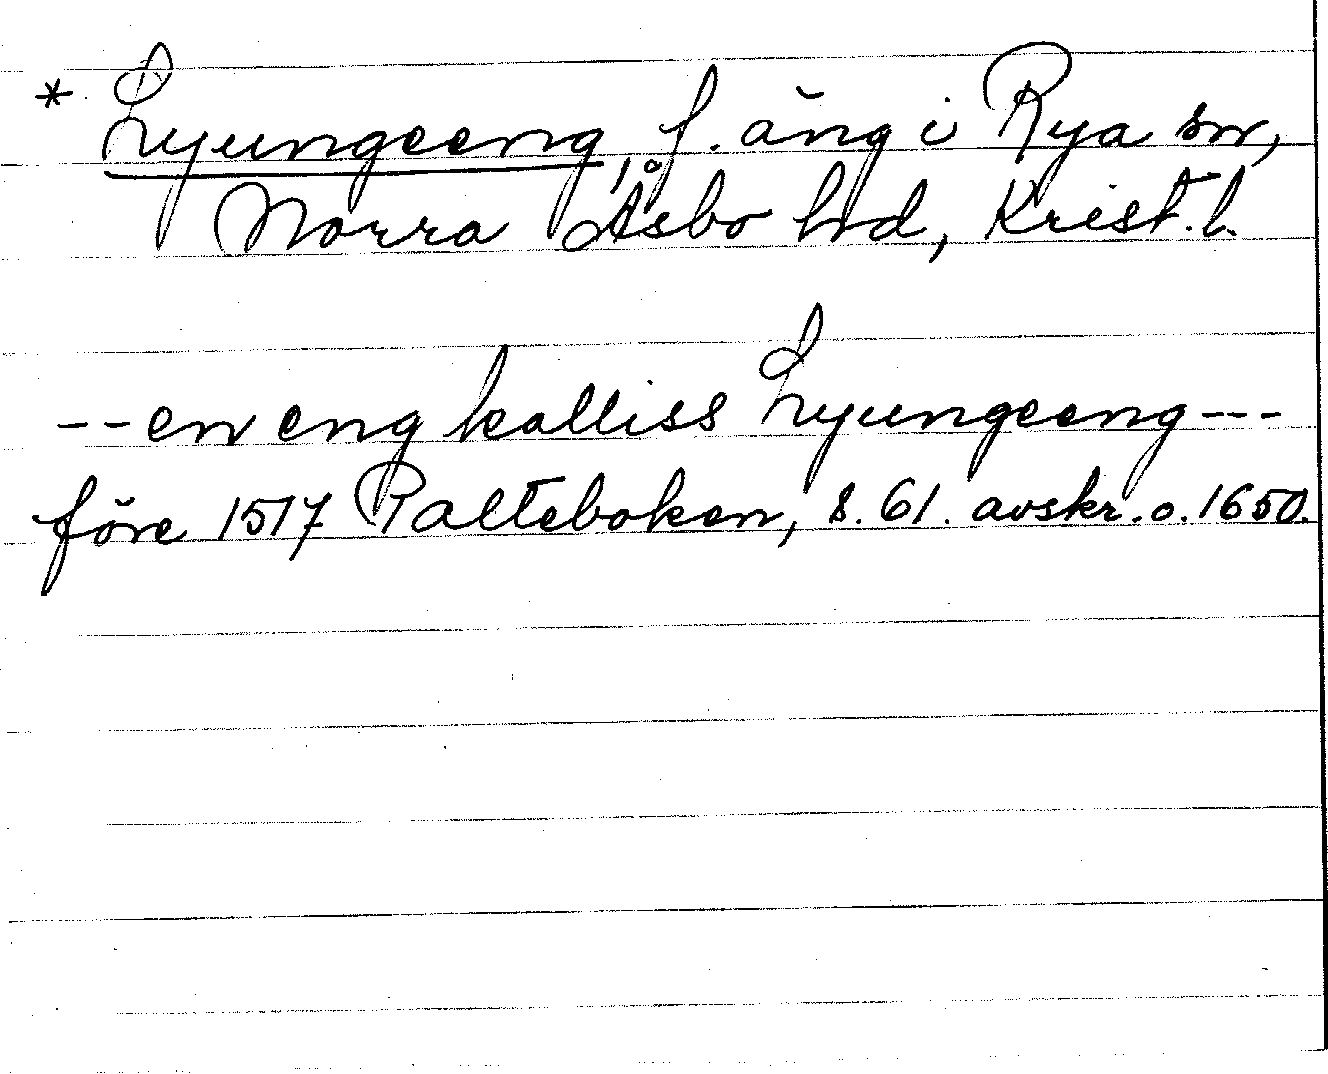 * Lyungeeng, f. äng i Rya sn,
Norra Åsbo hd, Krist. l.
--en eng kalliss Lyungeeng---
före 1517 Palteboken, s. 61. avskr. o. 1650.